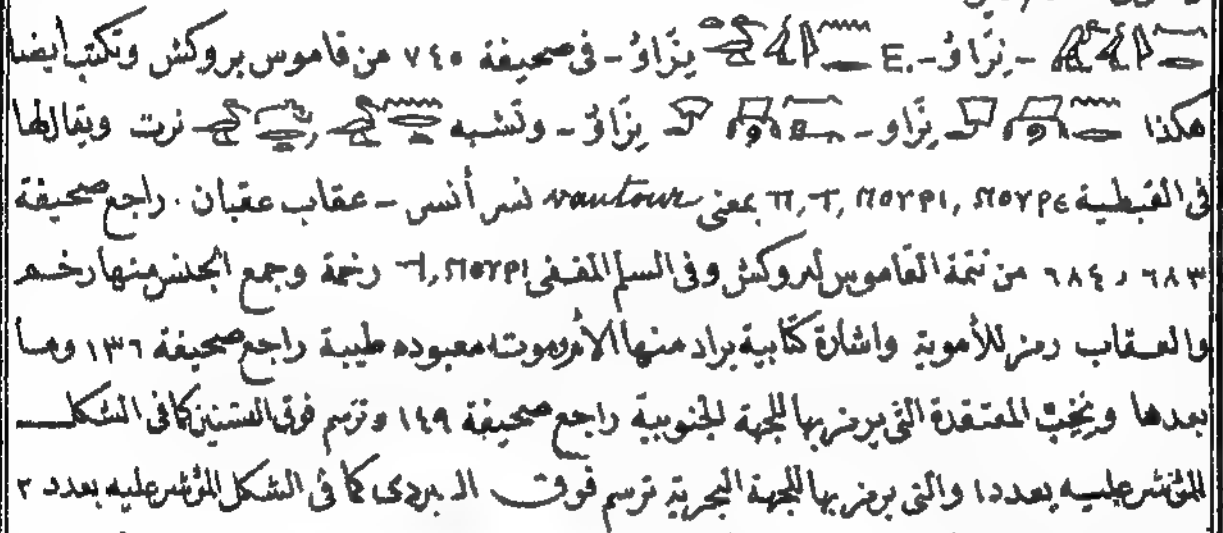 نِزَاوُ - E. - نِزَاوُ - فى صحيفة ٧٤٥ من قاموس بروكش وتكتب أيضا
هكذا نِزَّاو - نِزَاوُ - وتشبه نرت ويقال لها
فى القبطية ⲛⲟⲩⲣⲉ ,ⲛⲟⲩⲣⲓ ,ⲡ,ⲧ بمعنى vautour نسر أنسر - عقاب عقبان . راجع صحيفة
٦٨٣ و ٦٨٤ من تتمة القاموس لبروكش وفى السلم المقفى ⲛⲟⲩⲣⲓ ,ϯ رخمة وجمع الجنس منها رخم
والعقاب رمز للأموية واشارة كتابية يراد منها الأم وموت معبوده طيبة راجع صحيفة ١٣٦ وما
بعدها ونِخِبْ المعتقدة التى يرمز بها للجهة الجنوبية راجع صحيفة ١٤٩ وترسم فوق السنتين كما فى الشكل
المؤشر عليه بعدد ١ والتى يرمز بها للجهة البحرية ترسم فوق البردى كما فى الشكل المؤشر عليه بعدد ٢